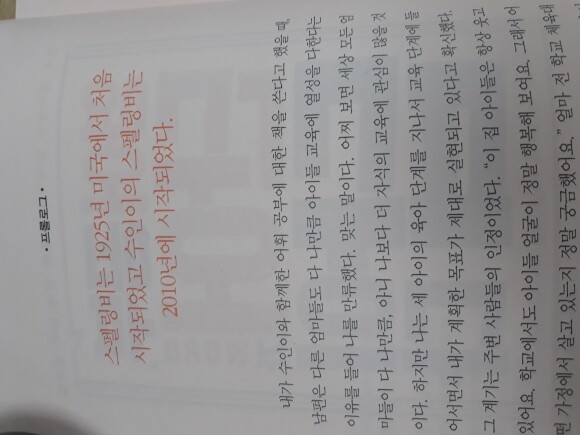 • 프롤로그 •
스펠링비는 1925년 미국에서 처음
시작되었고 수인이의 스펠링비는
2010년에 시작되었다.
내가 수인이와 함께한 어휘 공부에 대한 책을 쓴다고 했을 때,
남편은 다른 엄마들도 다 나만큼 아이들 교육에 열성을 다한다는
이유를 들어 나를 만류했다. 맞는 말이다. 어찌 보면 세상 모든 엄
마들이 다 나만큼, 아니 나보다 더 자식의 교육에 관심이 많을 것
이다. 하지만 나는 세 아이의 육아 단계를 지나서 교육 단계에 들
어서면서 내가 계획한 목표가 제대로 실현되고 있다고 확신했다.
그 계기는 주변 사람들의 인정이었다. “이 집 아이들은 항상 웃고
있어요. 학교에서도 아이들 얼굴이 정말 행복해 보여요. 그래서 어
떤 가정에서 살고 있는지 정말 궁금했어요.” 얼마 전 학교 체육대